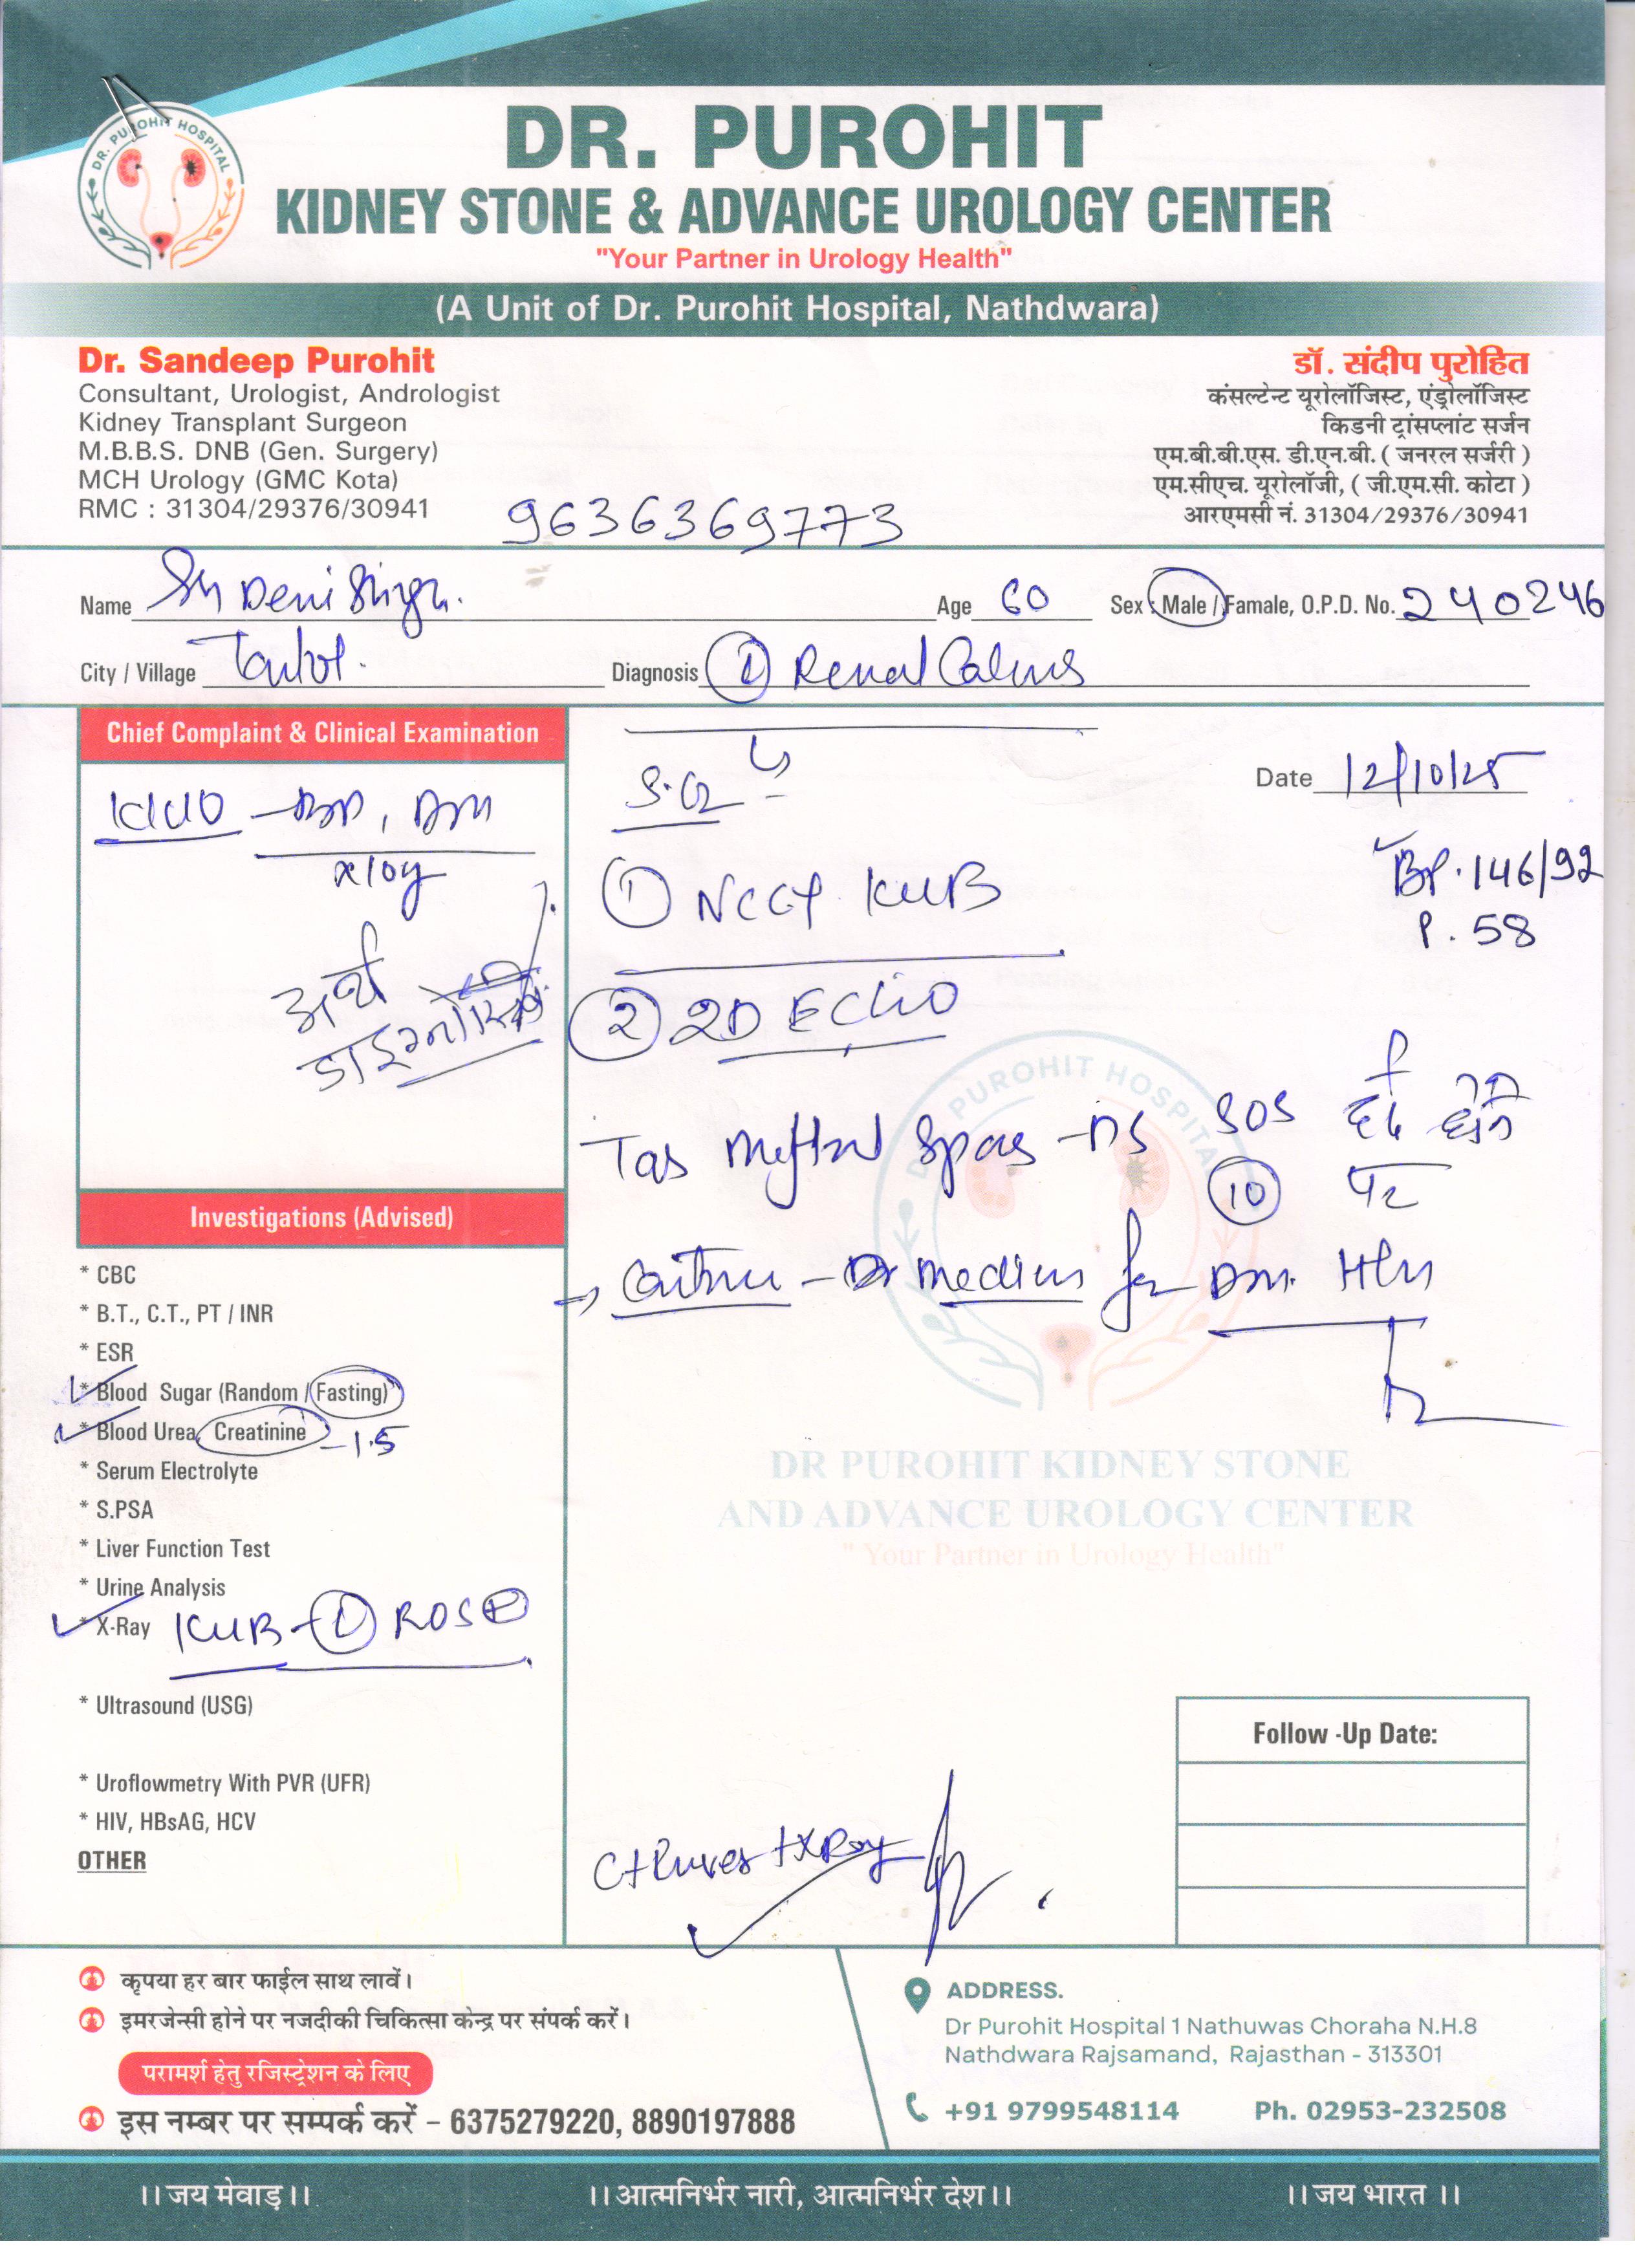 DR. PUROHIT HOSPITAL
DR. PUROHIT
KIDNEY STONE & ADVANCE UROLOGY CENTER
"Your Partner in Urology Health"
(A Unit of Dr. Purohit Hospital, Nathdwara)
Dr. Sandeep Purohit
Consultant, Urologist, Andrologist
Kidney Transplant Surgeon
M.B.B.S. DNB (Gen. Surgery)
MCH Urology (GMC Kota)
RMC : 31304/29376/30941
डॉ. संदीप पुरोहित
कंसल्टेन्ट यूरोलॉजिस्ट, एंड्रोलॉजिस्ट
किडनी ट्रांसप्लांट सर्जन
एम.बी.बी.एस. डी.एन.बी. ( जनरल सर्जरी )
एम.सीएच. यूरोलॉजी, ( जी.एम.सी. कोटा )
आरएमसी नं. 31304/29376/30941
9636369773
Name Singh. Age 60 Sex Male / Famale, O.P.D. No. 240246
City / Village Diagnosis Renal
Chief Complaint & Clinical Examination
K/C/O
अर्थ
डाइग्नोस्टिक
Date 12/10/25
BP. 146/92
P. 58
① NCCT KUB
② 2D ECHO
Tab Meftal Spas -DS SOS दर्द होने
⑩ पर
for DM. HTN
Investigations (Advised)
* CBC
* B.T., C.T., PT / INR
* ESR
* Blood Sugar (Random / Fasting)
* Blood Urea, Creatinine - 1.5
* Serum Electrolyte
* S.PSA
* Liver Function Test
* Urine Analysis
* X-Ray KUB
* Ultrasound (USG)
* Uroflowmetry With PVR (UFR)
* HIV, HBsAG, HCV
OTHER
PUROHIT HOSPITAL
DR PUROHIT KIDNEY STONE
AND ADVANCE UROLOGY CENTER
" Your Partner in Urology Health"
Follow -Up Date:
+ X Ray
कृपया हर बार फाईल साथ लावें।
इमरजेन्सी होने पर नजदीकी चिकित्सा केन्द्र पर संपर्क करें।
परामर्श हेतु रजिस्ट्रेशन के लिए
इस नम्बर पर सम्पर्क करें – 6375279220, 8890197888
ADDRESS.
Dr Purohit Hospital 1 Nathuwas Choraha N.H.8
Nathdwara Rajsamand, Rajasthan - 313301
+91 9799548114 Ph. 02953-232508
।। जय मेवाड़ ।। ।। आत्मनिर्भर नारी, आत्मनिर्भर देश ।। ।। जय भारत ।।